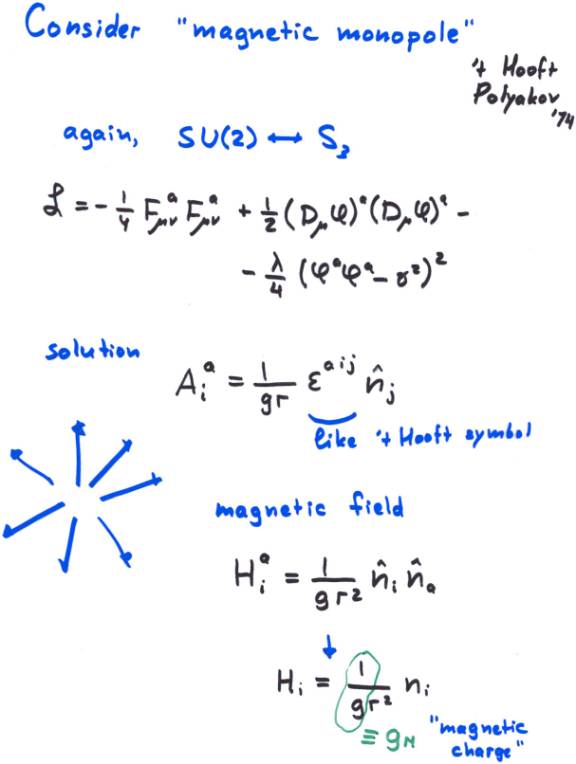 Consider "magnetic monopole"
't Hooft
Polyakov
'74
again, SU(2) ↔ S₃
ℒ = -1/4 F^a_μν F^a_μν + 1/2 (D_μ φ)^a (D_μ φ)^a -
- λ/4 (φ^a φ^a - v²)²
solution
A_i^a = 1/gr ε^aij n̂_j
like 't Hooft symbol
magnetic field
H_i^a = 1/gr² n̂_i n̂_a
↓
H_i = 1/gr² n_i
≡ g_M "magnetic
charge"